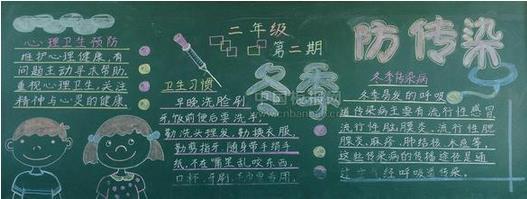 心理卫生预防
维护心理健康,有
问题主动寻求帮助
重视心理卫生,关注
精神与心灵的健康
二年级
第二期
冬季
防传染
卫生习惯
早晚洗脸刷
牙,饭前便后要洗手
勤洗头理发,勤换衣服
勤剪指甲 随身带手绢手
纸,不在嘴里乱咬东西
口杯 牙刷 专用
冬季传染病
冬季易发的呼吸
道传染病主要有流行性感冒
流行性脑膜炎,流行性腮
腺炎,麻疹,肺结核,水痘等
这些传染病的传播途径是通
经呼吸道传染